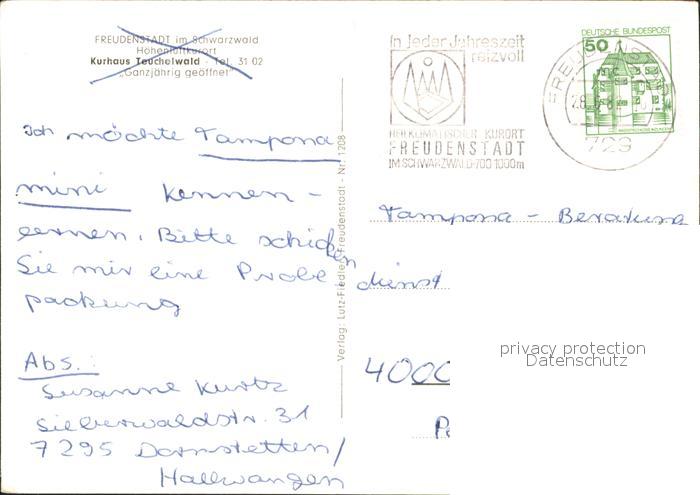 FREUDENSTADT im Schwarzwald
Höhenluftkurort
Kurhaus Teuchelwald - Tel. 31 02
„Ganzjährig geöffnet"
Ich möchte Tampona
mini kennen -
lernen. Bitte schicken
Sie mir eine Probe-
packung
Abs.:
Susanne Kurtz
Silberwaldstr. 31
7295 Dornstetten/
Hallwangen
Verlag: Lutz-Fiedler, Freudenstadt - Nr. 1208
In jeder Jahreszeit
reizvoll
HEILKLIMATISCHER KURORT
FREUDENSTADT
IM SCHWARZWALD·700·1000m
FREUDENSTADT
729
DEUTSCHE BUNDESPOST
50
Tampona - Beratungs
dienst
4000
privacy protection
Datenschutz